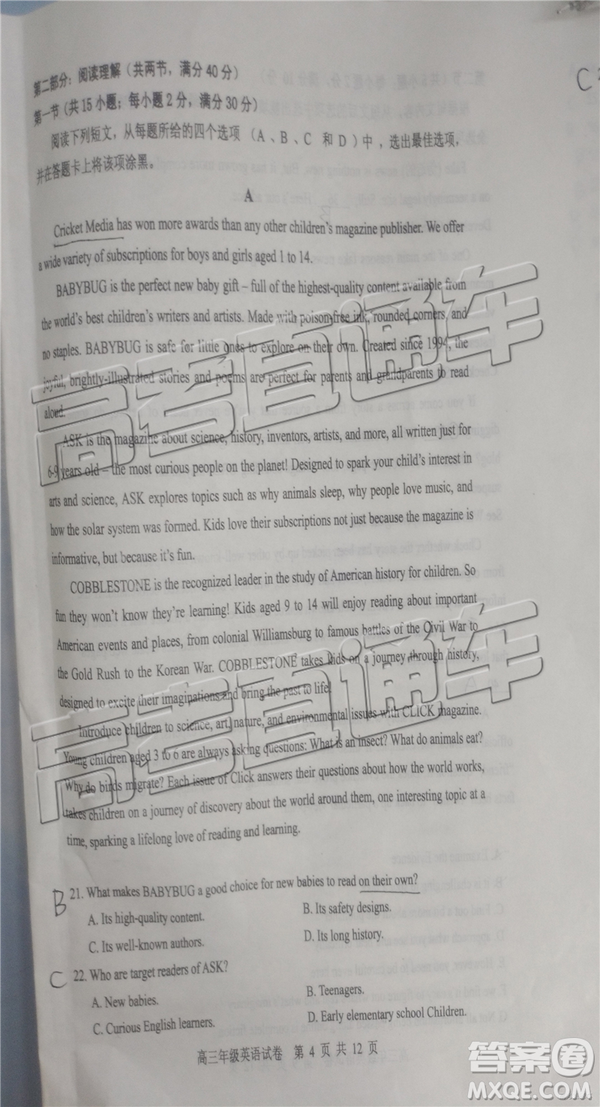 第二部分：阅读理解（共两节，满分40分）
第一节（共15小题；每小题2分，满分30分）
阅读下列短文，从每题所给的四个选项（A、B、C 和 D）中，选出最佳选项，
并在答题卡上将该项涂黑。
A
Cricket Media has won more awards than any other children's magazine publisher. We offer
a wide variety of subscriptions for boys and girls aged 1 to 14.
BABYBUG is the perfect new baby gift – full of the highest-quality content available from
the world's best children's writers and artists. Made with poison-free ink, rounded corners, and
no staples. BABYBUG is safe for little ones to explore on their own. Created since 1994, the
joyful, brightly-illustrated stories and poems are perfect for parents and grandparents to read
aloud.
ASK is the magazine about science, history, inventors, artists, and more, all written just for
6-9 years old – the most curious people on the planet! Designed to spark your child's interest in
arts and science, ASK explores topics such as why animals sleep, why people love music, and
how the solar system was formed. Kids love their subscriptions not just because the magazine is
informative, but because it's fun.
COBBLESTONE is the recognized leader in the study of American history for children. So
fun they won't know they're learning! Kids aged 9 to 14 will enjoy reading about important
American events and places, from colonial Williamsburg to famous battles of the Civil War to
the Gold Rush to the Korean War. COBBLESTONE takes kids on a journey through history,
designed to excite their imaginations and bring the past to life!
Introduce children to science, art, nature, and environmental issues with CLICK magazine.
Young children aged 3 to 6 are always asking questions: What is an insect? What do animals eat?
Why do birds migrate? Each issue of Click answers their questions about how the world works,
takes children on a journey of discovery about the world around them, one interesting topic at a
time, sparking a lifelong love of reading and learning.
B 21. What makes BABYBUG a good choice for new babies to read on their own?
A. Its high-quality content. B. Its safety designs.
C. Its well-known authors. D. Its long history.
C 22. Who are target readers of ASK?
A. New babies. B. Teenagers.
C. Curious English learners. D. Early elementary school Children.
高三年级英语试卷 第 4 页 共 12 页
C
高考直通车
高考直通车
MXQE.COM
答案圈